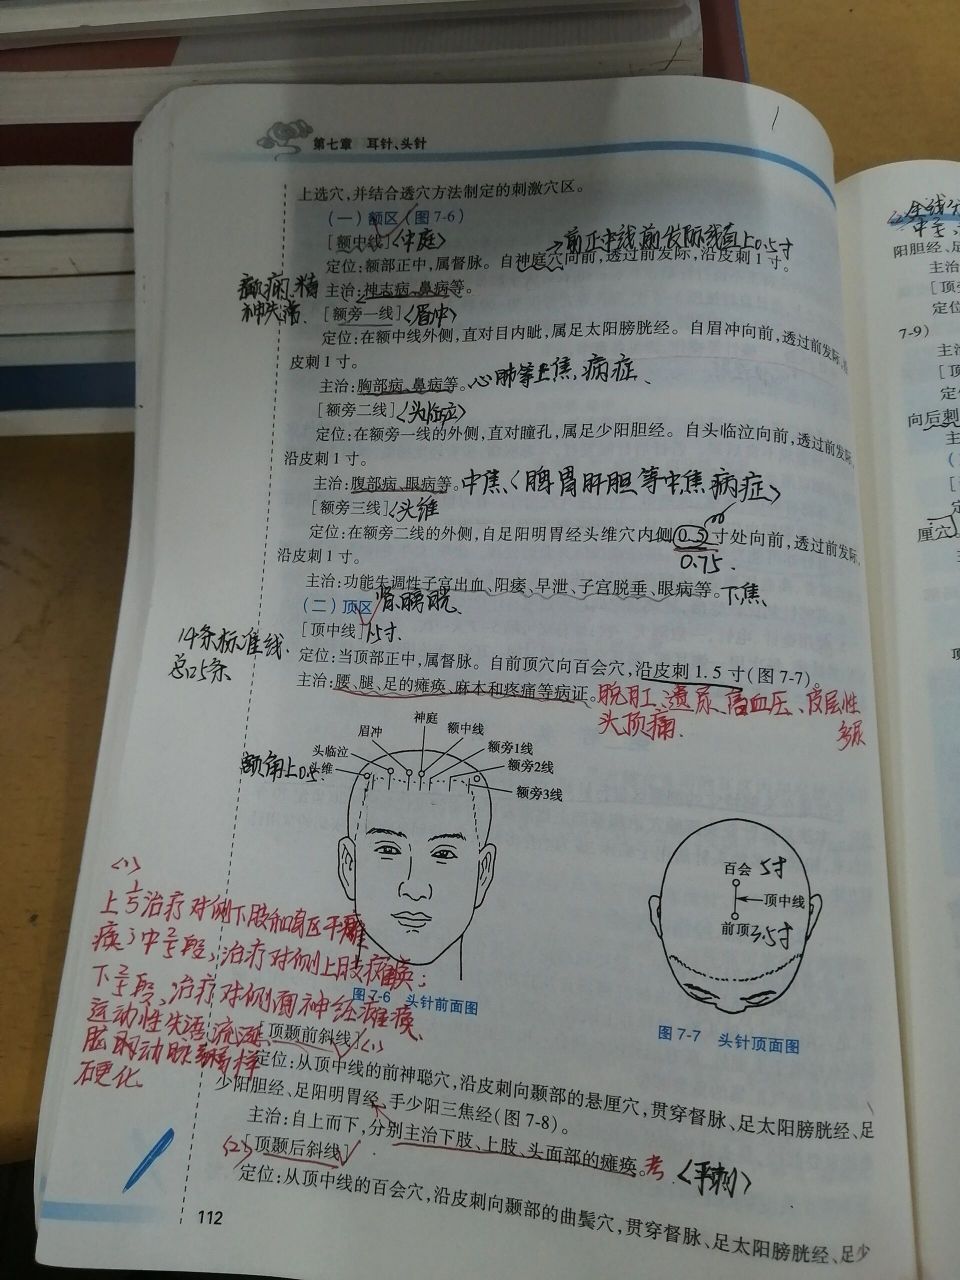 第七章 耳针、头针
上选穴,并结合透穴方法制定的刺激穴区。
(一)额区(图7-6)
[额中线]〈中庭〉
→前正中线前发际线直上0.5寸
定位:额部正中,属督脉。自神庭穴向前,透过前发际,沿皮刺1寸。
癫痫、精
神失常、
主治:神志病、鼻病等。
[额旁一线]〈眉冲〉
定位:在额中线外侧,直对目内眦,属足太阳膀胱经。自眉冲向前,透过前发际,沿
皮刺1寸。
主治:胸部病、鼻病等。心肺等上焦病症、
[额旁二线]〈头临泣〉
定位:在额旁一线的外侧,直对瞳孔,属足少阳胆经。自头临泣向前,透过前发际,
沿皮刺1寸。
主治:腹部病、眼病等。中焦〈脾胃肝胆等中焦病症〉
[额旁三线]〈头维
定位:在额旁二线的外侧,自足阳明胃经头维穴内侧0.5寸处向前,透过前发际,
0.75.
沿皮刺1寸。
主治:功能失调性子宫出血、阳痿、早泄、子宫脱垂、眼病等。下焦、
肾膀胱、
(二)顶区
[顶中线]1.5寸.
14条标准线、
总25条
定位:当顶部正中,属督脉。自前顶穴向百会穴,沿皮刺1.5寸(图7-7)。
主治:腰、腿、足的瘫痪、麻木和疼痛等病证。脱肛、遗尿、高血压、皮层性
多尿
头顶痛.
神庭
眉冲
额中线
头临泣
额旁1线
头维
额旁2线
额旁3线
额角上0.5.
百会 5寸
顶中线
前顶3.5寸
图7-6 头针前面图
图7-7 头针顶面图
〈1〉
上1/5治疗对侧下肢和躯干瘫
痪;中2/5段,治疗对侧上肢瘫痪;
下2/5段,治疗对侧面神经瘫痪、
运动性失语,流涎、
脑动脉粥样
硬化.
[顶颞前斜线]〈1〉
定位:从顶中线的前神聪穴,沿皮刺向颞部的悬厘穴,贯穿督脉、足太阳膀胱经、足
少阳胆经、足阳明胃经、手少阳三焦经(图7-8)。
主治:自上而下,分别主治下肢、上肢、头面部的瘫痪。考.〈平刺〉
〈2〉[顶颞后斜线]
定位:从顶中线的百会穴,沿皮刺向颞部的曲鬓穴,贯穿督脉、足太阳膀胱经、足少
112
阳胆经、足
主治
[顶
定位
7-9)
主
[顶
定
向后刺
主
厘穴